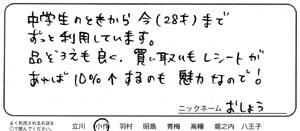 中学生のときから今(28才)まで
ずっと利用しています。
品ぞろえも良く、買い取りもレシートが
あれば10%↑するのも魅力なので!
ニックネーム おしょう
よく利用されるお店を
○で囲んでください。 立川 小作 羽村 昭島 青梅 高幡 堀之内 八王子